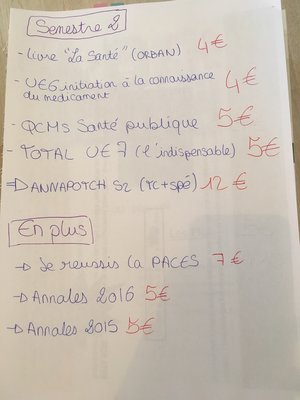 Semestre 2
- Livre "La Santé" (ORBAN) 4€
- UE6 initiation à la connaissance 4€
du medicament
- QCMs Santé publique 5€
- TOTAL UE7 (l'indispensable) 5€
=> ANNAPOTCH S2 (TC+spé) 12€
En plus
-> Je reussis la PACES 7€
-> Annales 2016 5€
-> Annales 2015 5€